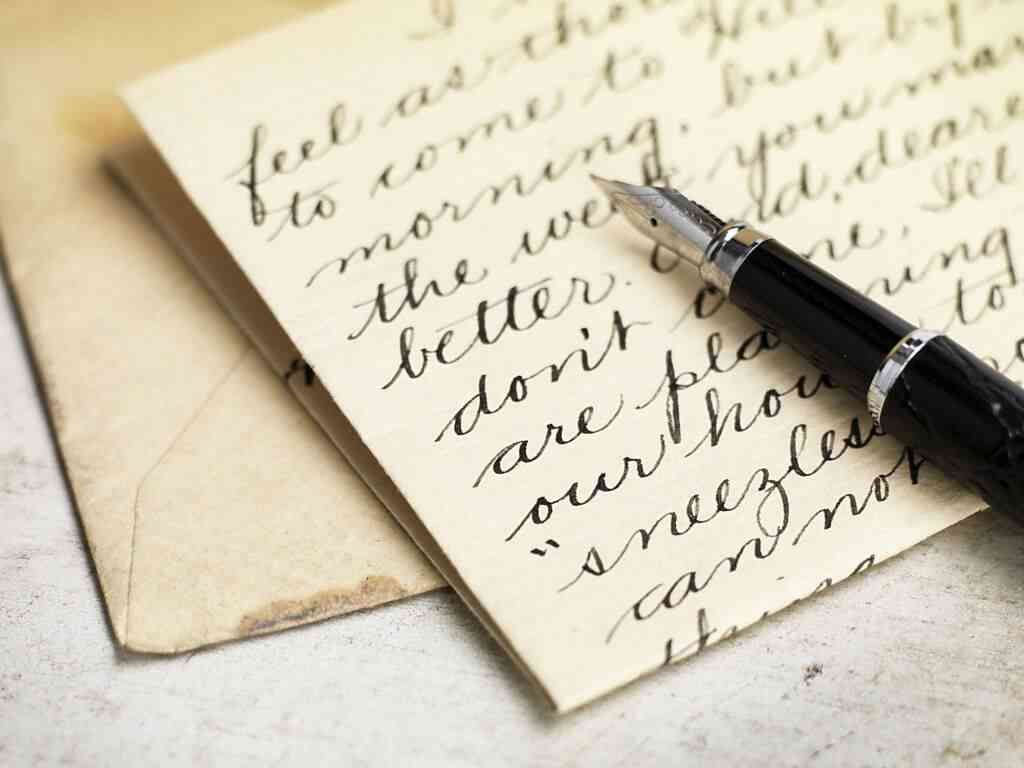 I
feel as thou
to come to
morning, but by
the week you mar
better. ld, deare
don't c me, I'll
are pla ning
our hou to
"sneezles
can not